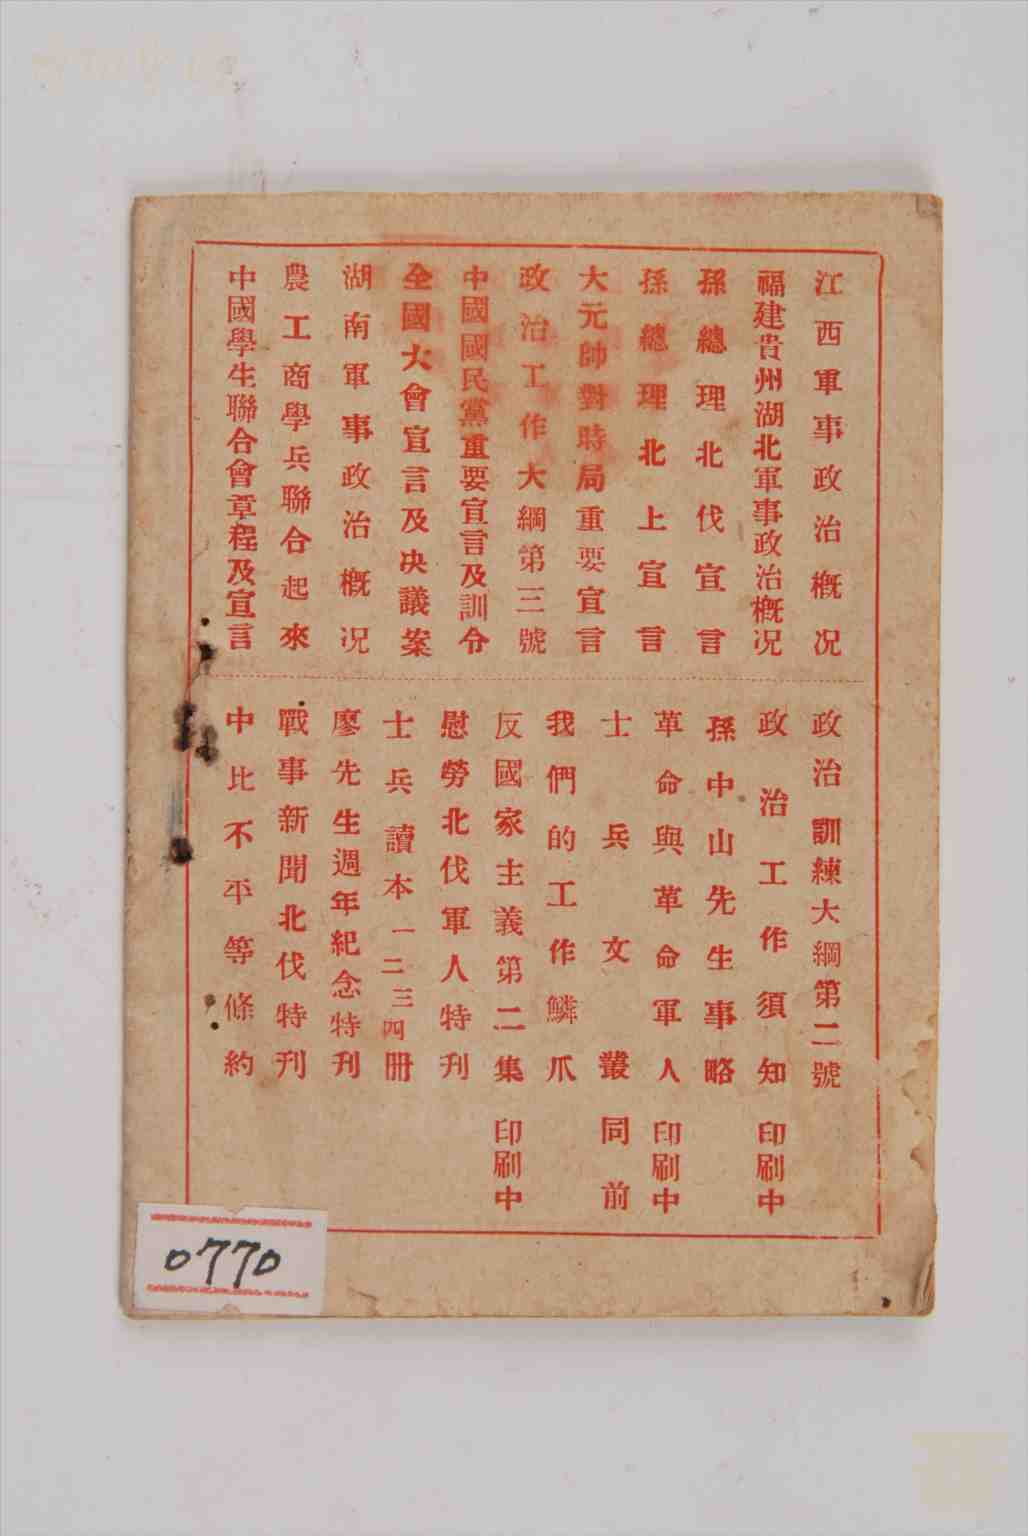 江西軍事政治概况
福建貴州湖北軍事政治概况
孫總理北伐宣言
孫總理北上宣言
大元帥對時局重要宣言
政治工作大綱第三號
中國國民黨重要宣言及訓令
全國大會宣言及决議案
湖南軍事政治概况
農工商學兵聯合起來
中國學生聯合會章程及宣言
政治訓練大綱第二號
政治工作須知 印刷中
孫中山先生事略
革命與革命軍人 印刷中
士兵文叢 同前
我們的工作鱗爪
反國家主義第二集 印刷中
慰勞北伐軍人特刊
士兵讀本一二三四册
廖先生週年紀念特刊
戰事新聞北伐特刊
中比不平等條約
0770